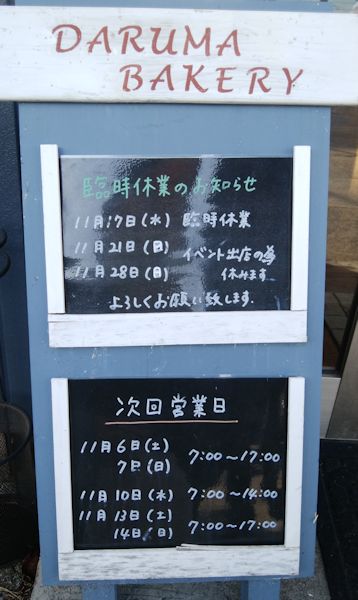 DARUMA
BAKERY
臨時休業のお知らせ
11月17日(水) 臨時休業
11月21日(日) イベント出店の為
11月28日(日) 休みます
よろしくお願い致します.
次回営業日
11月6日(土) 7:00~17:00
7日(日)
11月10日(水) 7:00~14:00
11月13日(土) 7:00~17:00
14日(日)